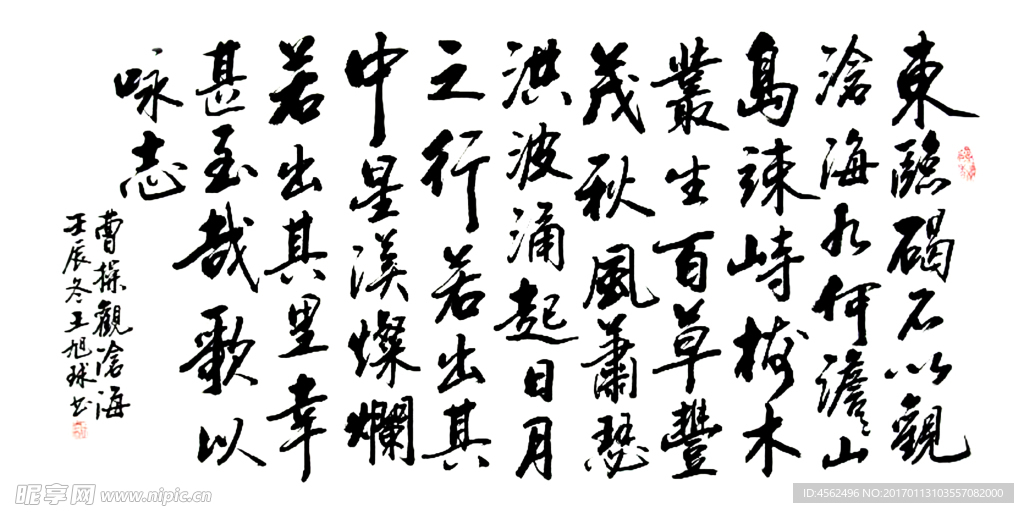 東臨碣石以觀
滄海水何澹〻山
島竦峙樹木
叢生百草豐
茂秋風蕭瑟
洪波涌起日月
之行若出其
中星漢燦爛
若出其里幸
甚至哉歌以
咏志
曹操觀滄海
壬辰冬王旭球书
昵享网 www.nipic.cn
ID:4562496 NO:20170113103557082000